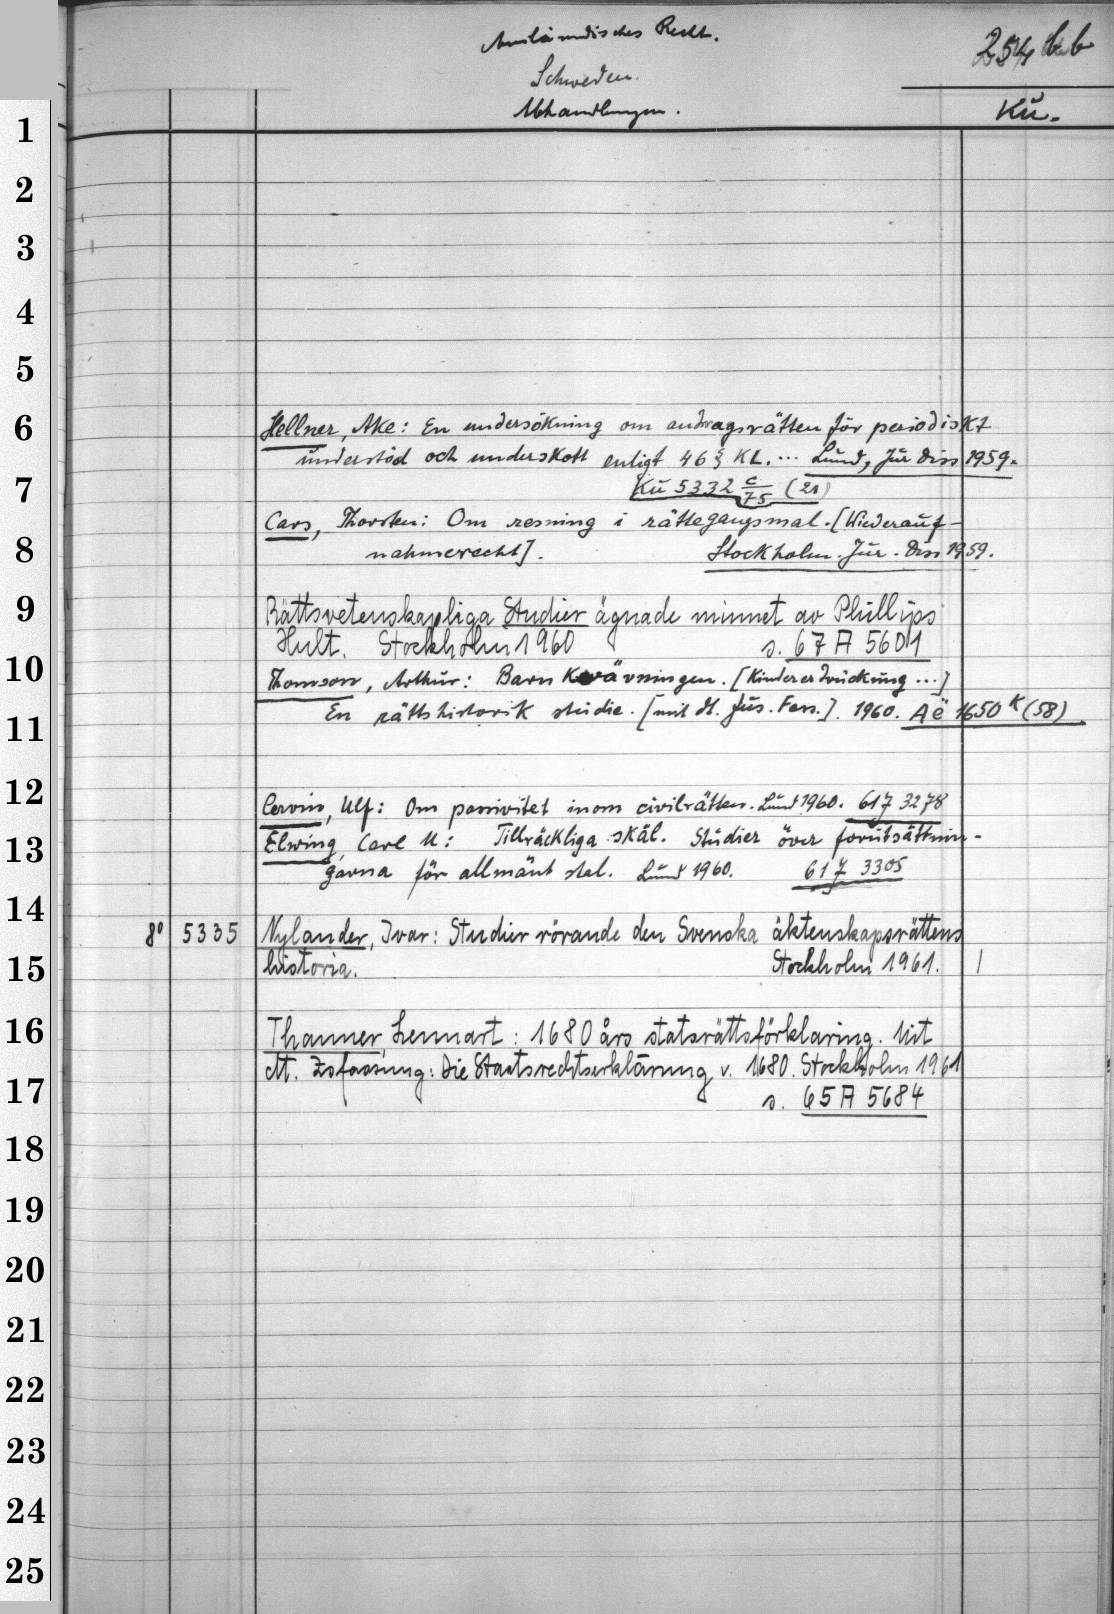 Ausländisches Recht.
254 bb
Schweden.
Abhandlungen.
Kü.
1
2
3
4
5
6
Hellner, Ake: En undersökning om avdragsrätten för periodiskt
understöd och underskott enligt 46 § KL. ... Lund, Jur Diss 1959.
7
Kü 5332 c/75 (21)
Cars, Thorsten: Om resning i rättegangsmal. [Wiederauf-
8
nahmerecht]. Stockholm. Jur. Diss 1959.
9
Rättsvetenskapliga Studier ägnade minnet av Phillips
Hult. Stockholm 1960 s. 67 A 5601
10
Thomson, Arthur: Barnkvävningen. [Kindererdrückung ...]
En rättshistorik studie. [mit dt. Zus. Fass.]. 1960. Aë 1650 K (58)
11
12
Cervin, Ulf: Om passivitet inom civilrätten. Lund 1960. 617 3278
13
Elwing, Carl M: Tillräckliga skäl. Studier över forutsättnin-
garna för allmänt atal. Lund 1960. 617 3305
14
8° 5335 Nylander, Ivar: Studier rörande den Svenska äktenskapsrättens
15
historia. Stockholm 1961. |
16
Thanner, Lennart: 1680 års statsrättsförklaring. Mit
dt. Zsfassung: Die Staatsrechtserklärung v. 1680. Stockholm 1961
17
s. 65 A 5684
18
19
20
21
22
23
24
25